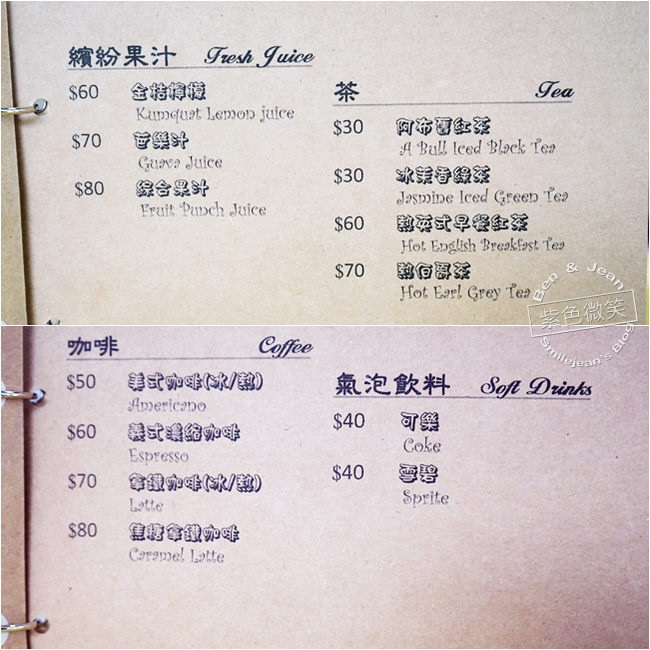 繽紛果汁 Fresh Juice
$60 金桔檸檬
Kumquat Lemon juice
$70 芭樂汁
Guava Juice
$80 綜合果汁
Fruit Punch Juice
茶 Tea
$30 阿布魯紅茶
A Bull Iced Black Tea
$30 冰茉香綠茶
Jasmine Iced Green Tea
$60 熱英式早餐紅茶
Hot English Breakfast Tea
$70 熱伯爵茶
Hot Earl Grey Tea
Ben & Jean
紫色微笑
Smilejean's Blog
咖啡 Coffee
$50 美式咖啡(冰/熱)
Americano
$60 義式濃縮咖啡
Espresso
$70 拿鐵咖啡(冰/熱)
Latte
$80 焦糖拿鐵咖啡
Caramel Latte
氣泡飲料 Soft Drinks
$40 可樂
Coke
$40 雪碧
Sprite